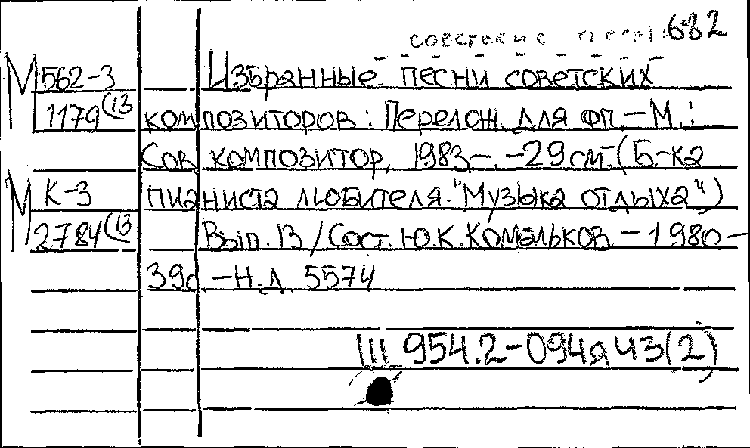 682
М 562-3 Избранные песни советских
1179(13 композиторов: Перелож. для фп. – М.:
Сов композитор, 1983–. – 29 см. (Б-ка
М К-3 пианиста любителя. "Музыка отдыха")
2784(13 Вып. 13 / Сост. Ю.К. Комальков – 1980 –
39с. – Н.д. 5574
III 954.2-094я43(2)